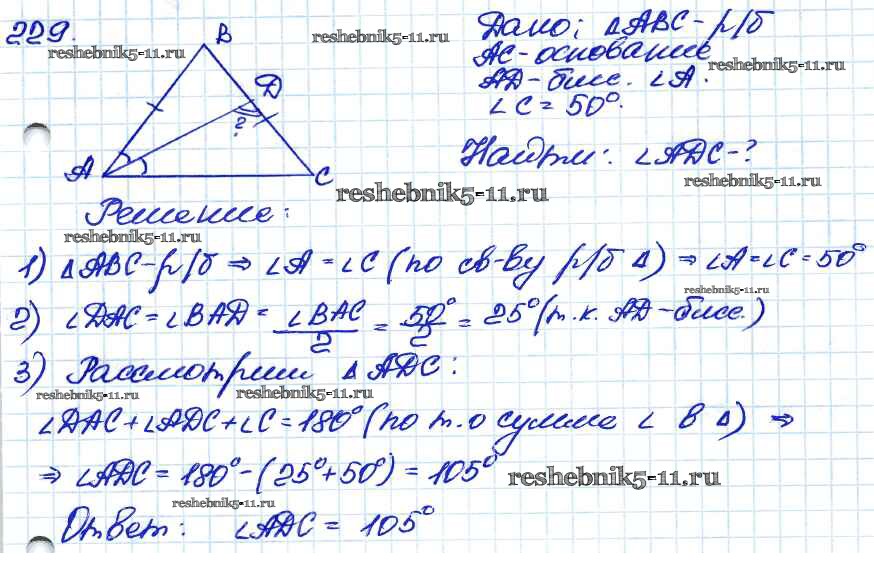 229.
B
D
?
A
C
Дано: △ABC - р/б
AC - основание
AD - бисс. ∠A.
∠C = 50°.
Найти: ∠ADC - ?
Решение:
1) △ABC - р/б ⇒ ∠A = ∠C (по св-ву р/б △) ⇒ ∠A = ∠C = 50°
2) ∠DAC = ∠BAD = ∠BAC/2 = 50°/2 = 25° (т.к. AD - бисс.)
3) Рассмотрим △ADC:
∠DAC + ∠ADC + ∠C = 180° (по т. о сумме ∠ в △) ⇒
⇒ ∠ADC = 180° - (25° + 50°) = 105°
Ответ: ∠ADC = 105°
reshebnik5-11.ru
reshebnik5-11.ru
reshebnik5-11.ru
reshebnik5-11.ru
reshebnik5-11.ru
reshebnik5-11.ru
reshebnik5-11.ru
reshebnik5-11.ru
reshebnik5-11.ru
reshebnik5-11.ru
reshebnik5-11.ru